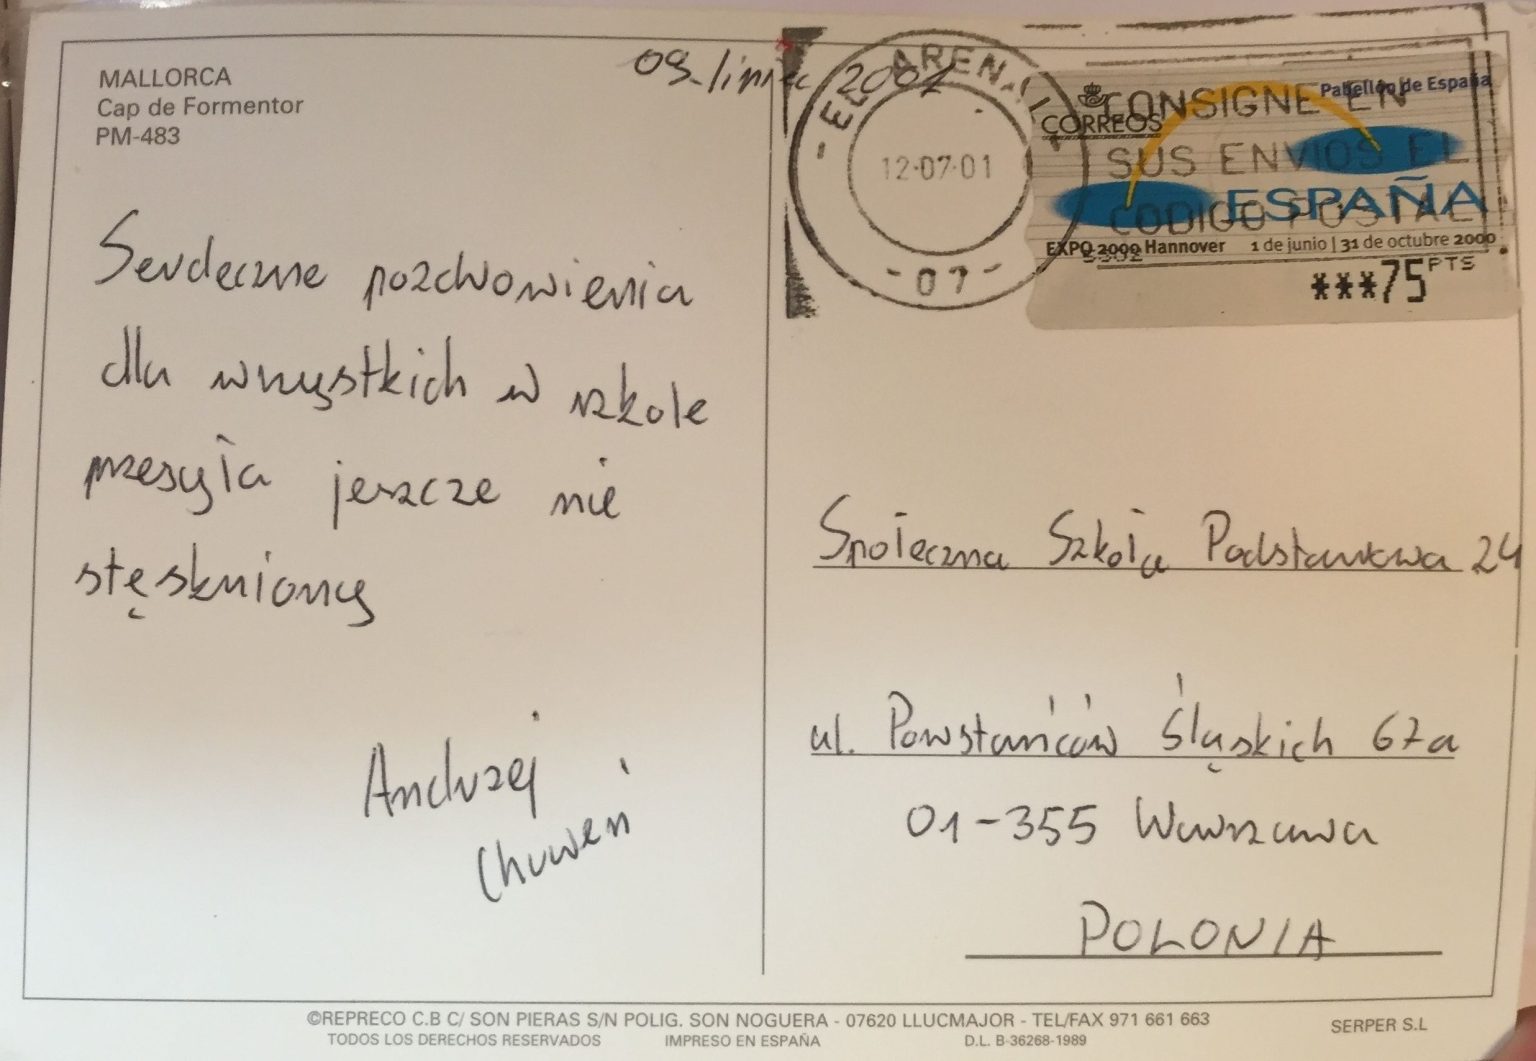 MALLORCA
Cap de Formentor
PM-483
09. lipiec 2001
Serdeczne pozdrowienia
dla wszystkich w szkole
przesyła jeszcze nie
stęskniony
Andrzej
Chuweń
- EL ARENAL -
12-07-01
- 07 -
CONSIGNE EN
SUS ENVIOS EL
CODIGO POSTAL
CORREOS
Pabellón de España
ESPAÑA
EXPO 2000 Hannover 1 de junio | 31 de octubre 2000
***75 PTS
Społeczna Szkoła Podstawowa 24
ul. Powstańców Śląskich 67a
01-355 Warszawa
POLONIA
©REPRECO C.B C/ SON PIERAS S/N POLIG. SON NOGUERA - 07620 LLUCMAJOR - TEL/FAX 971 661 663
TODOS LOS DERECHOS RESERVADOS IMPRESO EN ESPAÑA D.L. B-36268-1989
SERPER S.L